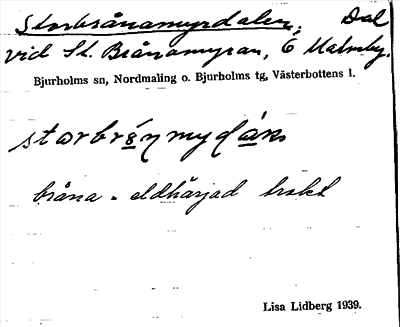 Storbrånamyrdalen, Dal
vid St. Brånamyran, Ö Malmby.
Bjurholms sn, Nordmaling o. Bjurholms tg, Västerbottens l.
bråna = eldhärjad trakt
Lisa Lidberg 1939.